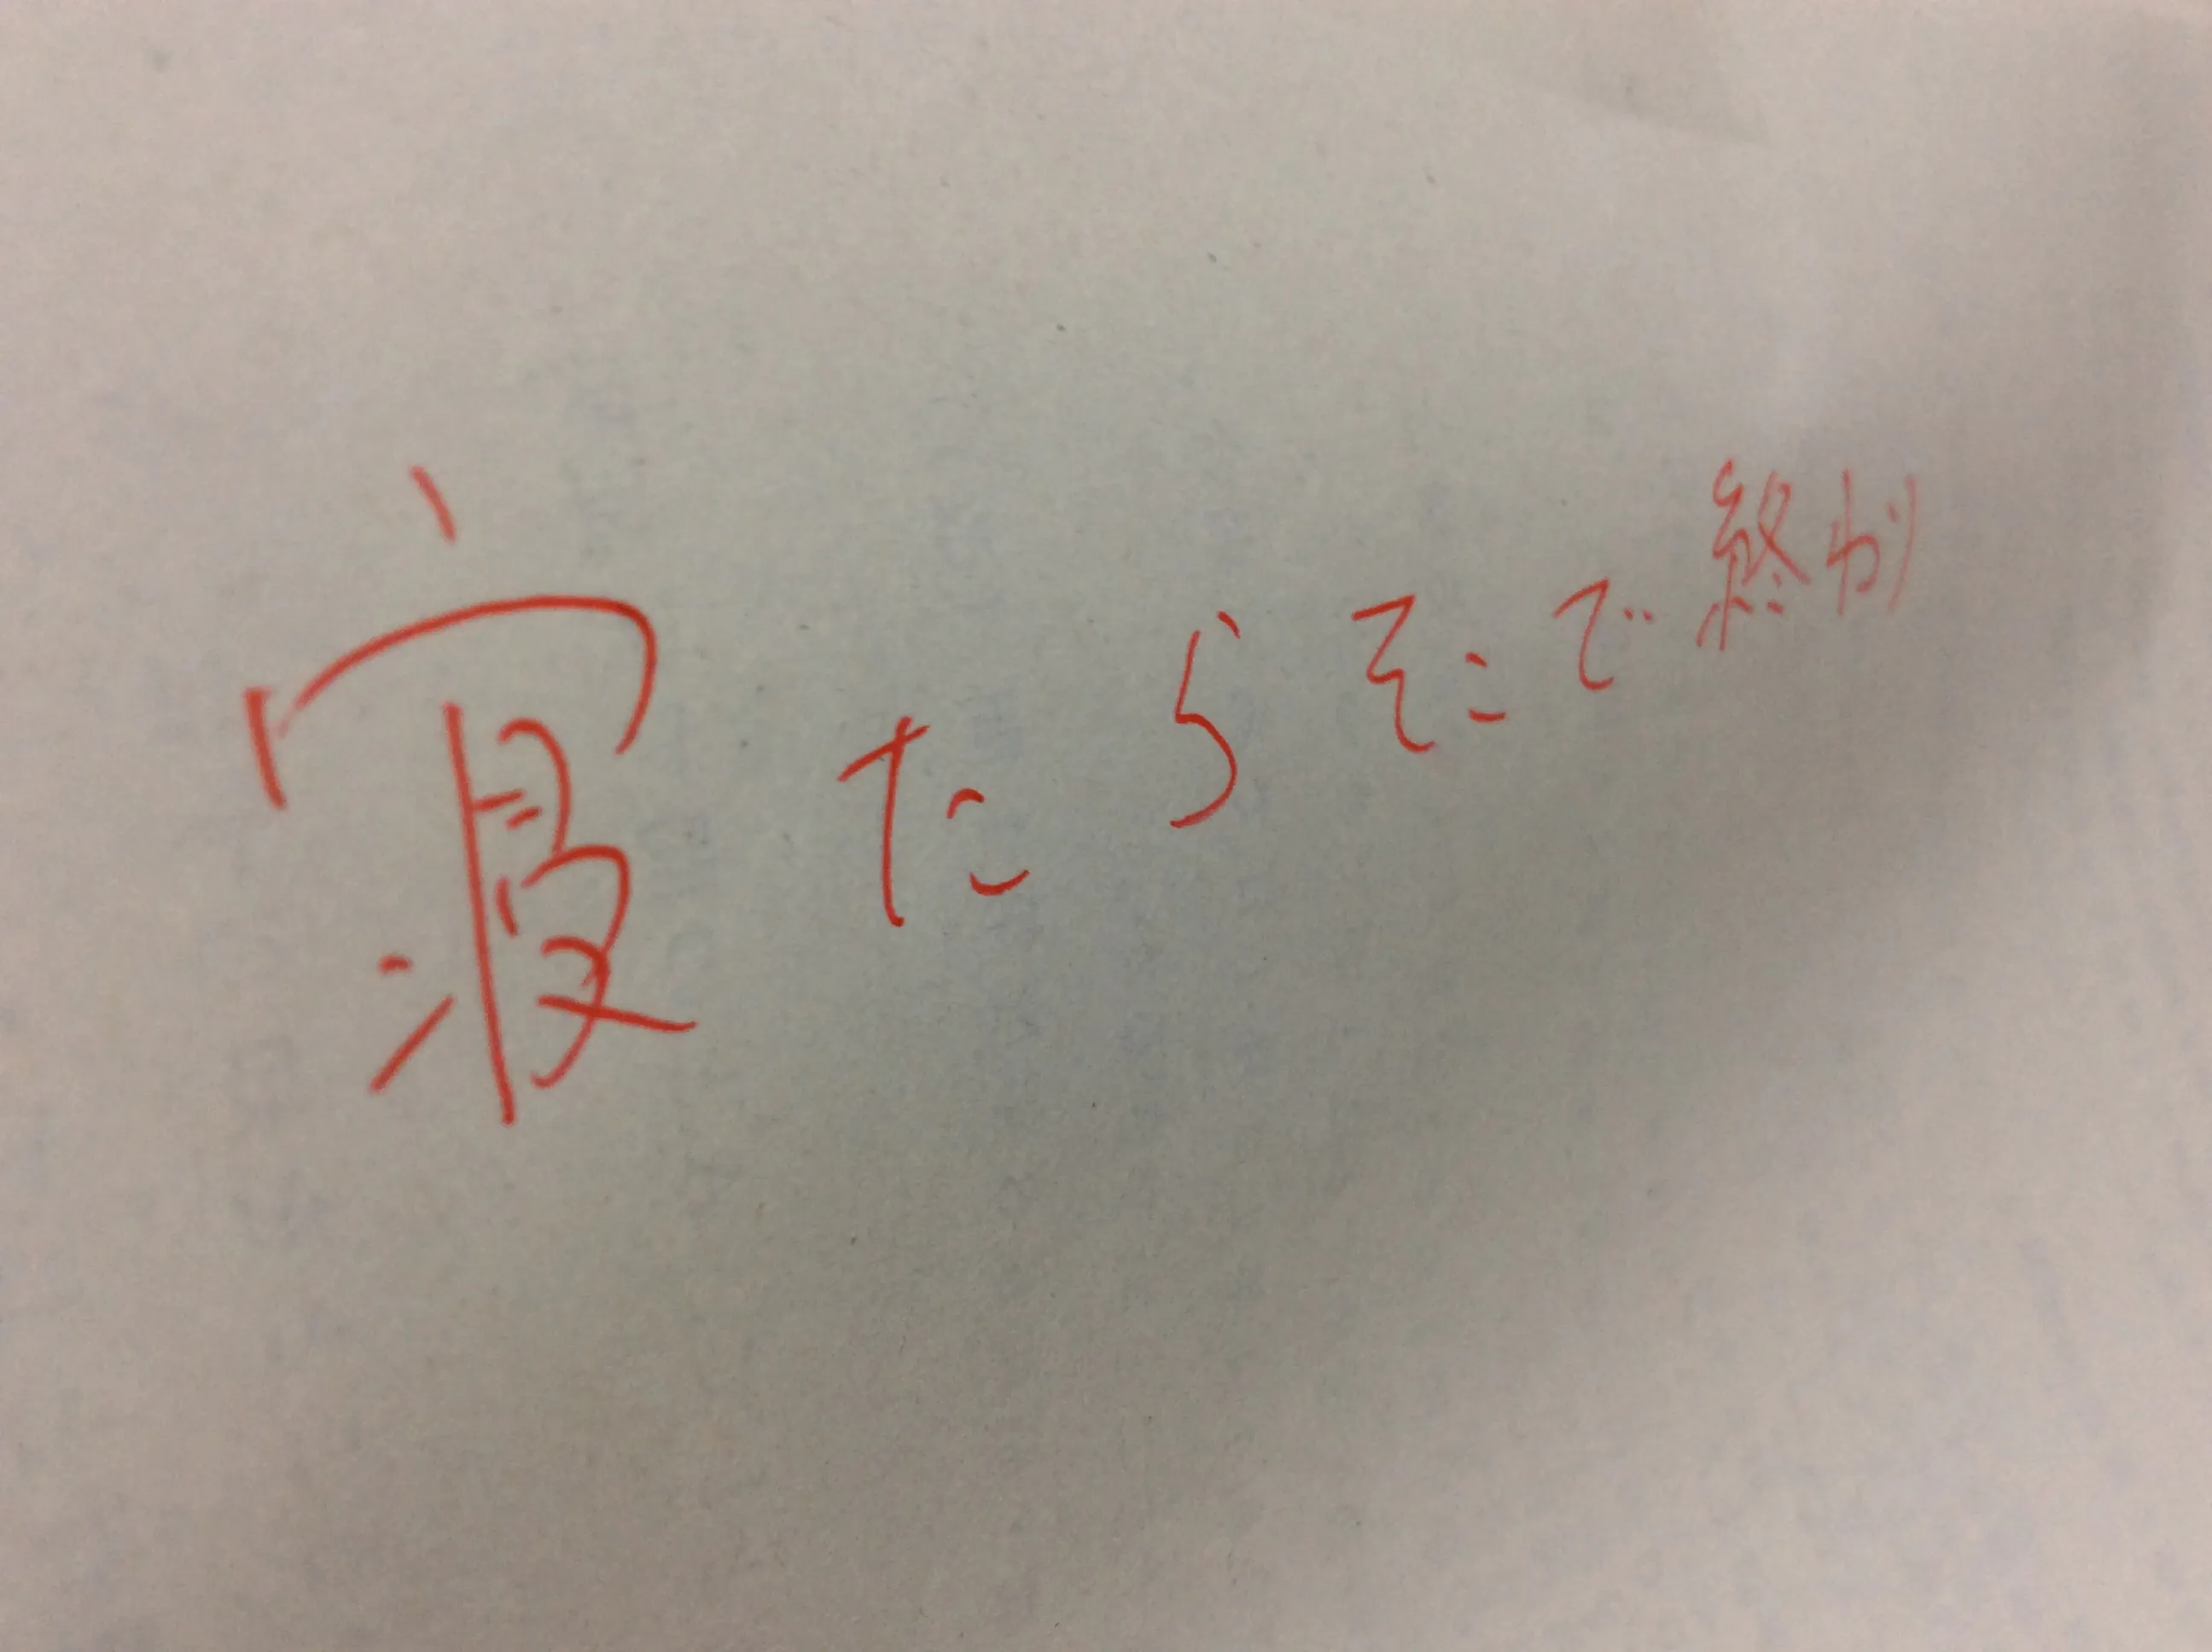 寝たらそこで終わり